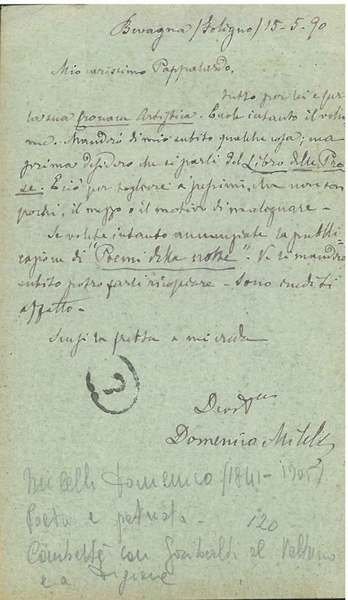 Bevagna (Foligno) 15-5-90
Mio carissimo Pappalardo,
tutto per lei e per
la sua Cronaca Artistica. Eccole intanto il volu
me. Manderò di mio subito qualche cosa; ma
prima desidero che si parli del Libro delle Pro
se. E ciò per togliere a , che non son
pochi, il mezzo o il motivo di malignare.
Se volete intanto annunziate la pubbli
cazione di "Poemi della notte". Ve li manderò
subito potrò farli ricopiare. Sono inediti
affatto.
Scusi la fretta e mi creda
3
Devot
Domenico Milelli
Milelli Domenico (1841-1905)
Poeta e patriota - 120
Combatté con Garibaldi al Volturno
e a Digione